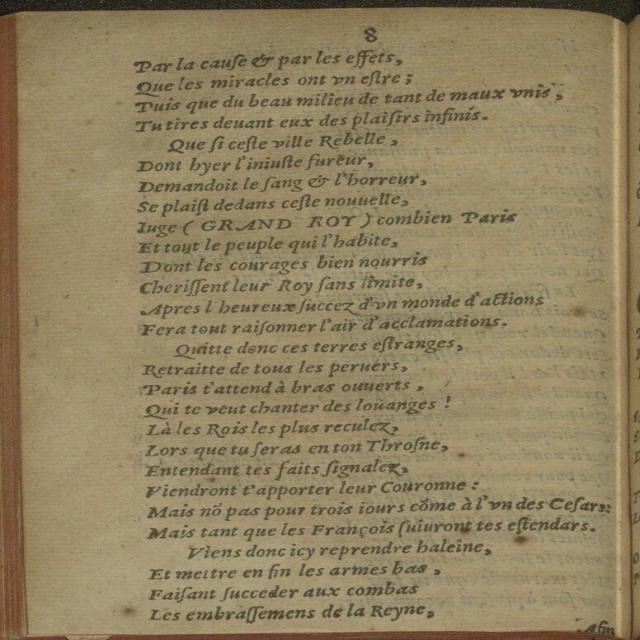 8
Par la cauſe & par les effets,
Que les miracles ont vn eſtre ;
Puis que du beau milieu de tant de maux vnis,
Tu tires deuant eux des plaiſirs infinis.
Que ſi ceſte ville Rebelle,
Dont hyer l'iniuſte fureur,
Demandoit le ſang & l'horreur,
Se plaiſt dedans ceſte nouuelle,
Iuge ( GRAND ROY ) combien Paris
Et tout le peuple qui l'habite,
Dont les courages bien nourris
Cheriſſent leur Roy ſans limite,
Apres l'heureux ſuccez d'vn monde d'actions
Fera tout raiſonner l'air d'acclamations.
Quitte donc ces terres eſtranges,
Retraitte de tous les peruers,
Paris t'attend à bras ouuerts,
Qui te veut chanter des loüanges !
Là les Rois les plus reculez,
Lors que tu ſeras en ton Throſne,
Entendant tes faits ſignalez,
Viendront t'apporter leur Couronne :
Mais nõ pas pour trois iours cõme à l'vn des Ceſars:
Mais tant que les François ſuiuront tes eſtendars.
Viens donc icy reprendre haleine,
Et mettre en fin les armes bas,
Faiſant ſucceder aux combas
Les embraſſemens de la Reyne,
Afin